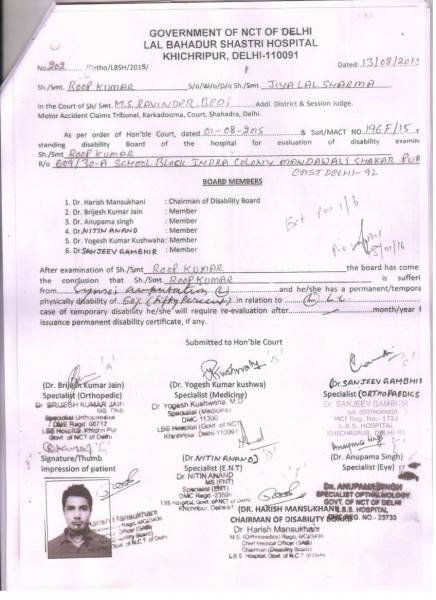 GOVERNMENT OF NCT OF DELHI
LAL BAHADUR SHASTRI HOSPITAL
KHICHRIPUR, DELHI-110091
No. 202 /Ortho/LBSH/2015/ Dated: 13/08/2015
Sh./Smt. ROOP KUMAR S/o/W/o/D/o Sh./Smt. JIYA LAL SHARMA
In the Court of Sh/ Smt. M.S. RAVINDER BEDI Addl. District & Session Judge.
Motor Accident Claims Tribunal, Karkadooma, Court, Shahadra, Delhi.
As per order of Hon'ble Court, dated 01-08-2015 & Suit/MACT NO. 196F/15
standing disability Board of the hospital for evaluation of disability examin
Sh./Smt. ROOP KUMAR
R/o 609/30-A SCHOOL BLOCK INDRA COLONY MANDAWALI SHAKAR PUR
EAST DELHI-92
BOARD MEMBERS
1. Dr. Harish Mansukhani : Chairman of Disability Board
2. Dr. Brijesh Kumar Jain : Member
3. Dr. Anupama singh : Member
4. Dr. NITIN ANAND : Member
5. Dr. Yogesh Kumar Kushwaha : Member
6. Dr SANJEEV GAMBHIR : Member
After examination of Sh./Smt. ROOP KUMAR the board has come
the conclusion that Sh./Smt. ROOP KUMAR is sufferi
from amputation (L) and he/she has a permanent/tempora
physically disability of 50% (fifty percent) in relation to
case of temporary disability he/she will require re-evaluation after month/year f
issuance permanent disability certificate, if any.
Submitted to Hon'ble Court
(Dr. Brijesh Kumar Jain)
Specialist (Orthopedic)
Dr BRIJESH KUMAR JAIN
Govt of NCT of Delhi
Signature/Thumb
Impression of patient
(Dr. Yogesh Kumar kushwa)
Specialist (Medicine)
Dr Yogesh Kushwaha, M.D
Specialist (Medicine)
DMC 11300
LBS Hospital, (Govt. of NCT)
Khichripur Delhi-110091
(Dr. SANJEEV GAMBHIR
Specialist (ORTHOPAEDICS
Dr. SANJEEV GAMBHIR
L.B.S. HOSPITAL
KHICHRIPUR, DELHI-91
(Dr. NITIN ANAND)
Specialist (E.N.T)
Dr. NITIN ANAND
MS (ENT)
Specialist (ENT)
LBS Hospital, Govt. of NCT of Delhi
(Dr. Anupama Singh)
Specialist (Eye)
Dr. ANUPAMA SINGH
SPECIALIST OPTHALMOLOGY
GOVT. OF NCT OF DELHI
L.B.S. HOSPITAL
DMC REG. NO.- 23733
(DR. HARISH MANSUKHANI)
CHAIRMAN OF DISABILITY BOARD
Dr Harish Mansukhani
Chief Medical Officer (SAG)
Chairman (Disability Board)
L.B.S. Hospital Govt. of N.C.T of Delhi